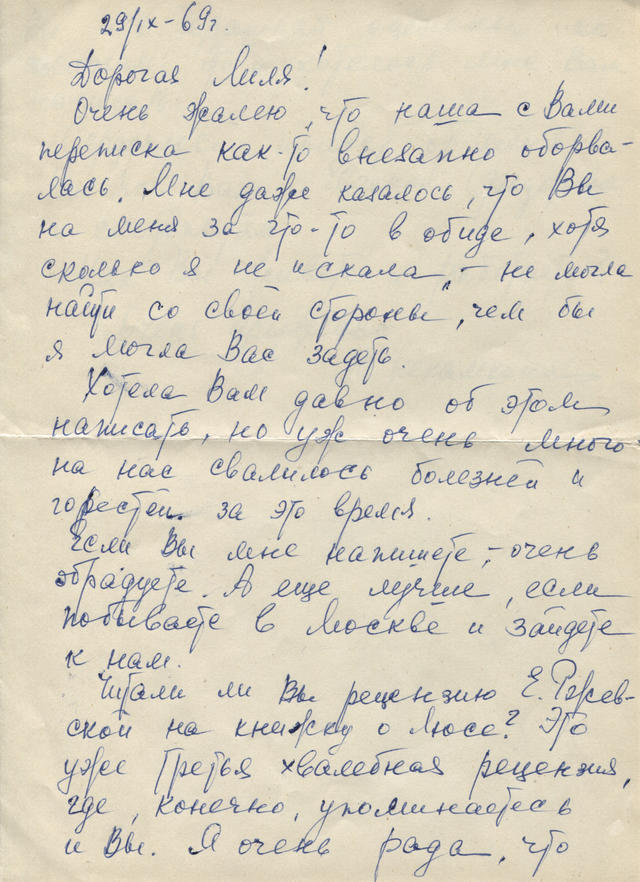 29/IX-69г.
Дорогая Лиля!
Очень жалею, что наша с Вами
переписка как-то внезапно оборва-
лась. Мне даже казалось, что Вы
на меня за что-то в обиде, хотя
сколько я не искала, - не могла
найти со своей стороны, чем бы
я могла Вас задеть.
Хотела Вам давно об этом
написать, но уж очень много
на нас свалилось болезней и
горестей за это время.
Если Вы мне напишете, - очень
обрадуете. А еще лучше, если
побываете в Москве и зайдете
к нам.
Читали ли Вы рецензию Е. Ржев-
ской на книжку о Люсе? Это
уже третья хвалебная рецензия,
где, конечно, упоминаетесь
и Вы. Я очень рада, что